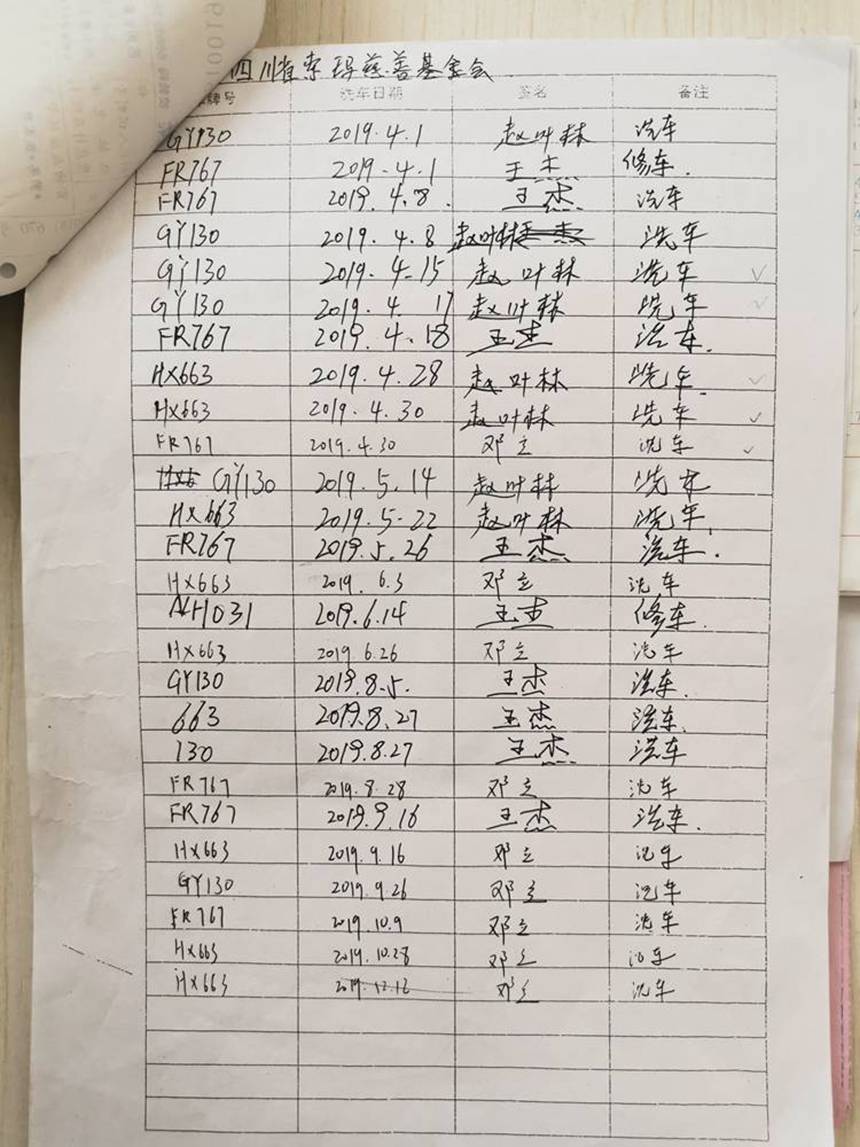 四川省索玛慈善基金会
牌号 洗车日期 签名 备注
GY130 2019.4.1 赵叶林 洗车
FR767 2019.4.1 王杰 修车.
FR767 2019.4.8. 王杰 洗车
GY130 2019.4.8 赵叶林 洗车
GY130 2019.4.15 赵叶林 洗车 √
GY130 2019.4.17 赵叶林 洗车 √
FR767 2019.4.18 王杰 洗车.
HX663 2019.4.28 赵叶林 洗车 √
HX663 2019.4.30 赵叶林 洗车 √
FR767 2019.4.30 邓立 洗车 √
GY130 2019.5.14 赵叶林 洗车
HX663 2019.5.22 赵叶林 洗车
FR767 2019.5.26 王杰 洗车.
HX663 2019.6.3 邓立 洗车
AH031 2019.6.14 王杰 修车.
HX663 2019 6.26 邓立 洗车
GY130 2019.8.5. 王杰 洗车.
663 2019.8.27 王杰 洗车.
130 2019.8.27 王杰 洗车
FR767 2019.8.28 邓立 洗车
FR767 2019.9.16 王杰 洗车.
HX663 2019.9.16 邓立 洗车
GY130 2019.9.26 邓立 洗车
FR767 2019.10.9 邓立 洗车
HX663 2019.10.28 邓立 洗车
HX663 2019.12.12 邓立 洗车